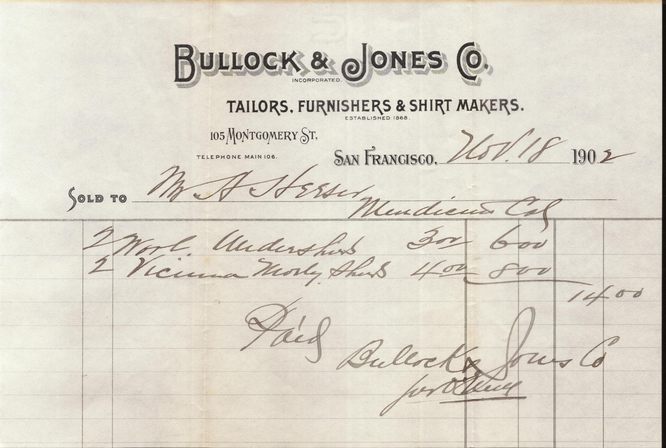 BULLOCK & JONES CO.
INCORPORATED.
TAILORS, FURNISHERS & SHIRT MAKERS.
ESTABLISHED 1868.
105 MONTGOMERY ST.
TELEPHONE MAIN 106.
SAN FRANCISCO, Nov. 18 1902
SOLD TO Mr A Heeser
Mendicino Cal
2 Wool Undershirts 300 600
2 Vicunna Shirts 400 800
1400
Paid
Bullock & Jones Co
per